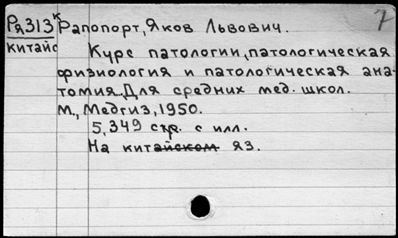 Ря313к Рапопорт, Яков Львович. 7
китайс
Курс патологии, патологическая
физиология и патологическая ана-
томия. Для средних мед. школ.
М., Медгиз, 1950.
5, 349 стр. с илл.
На китайском яз.